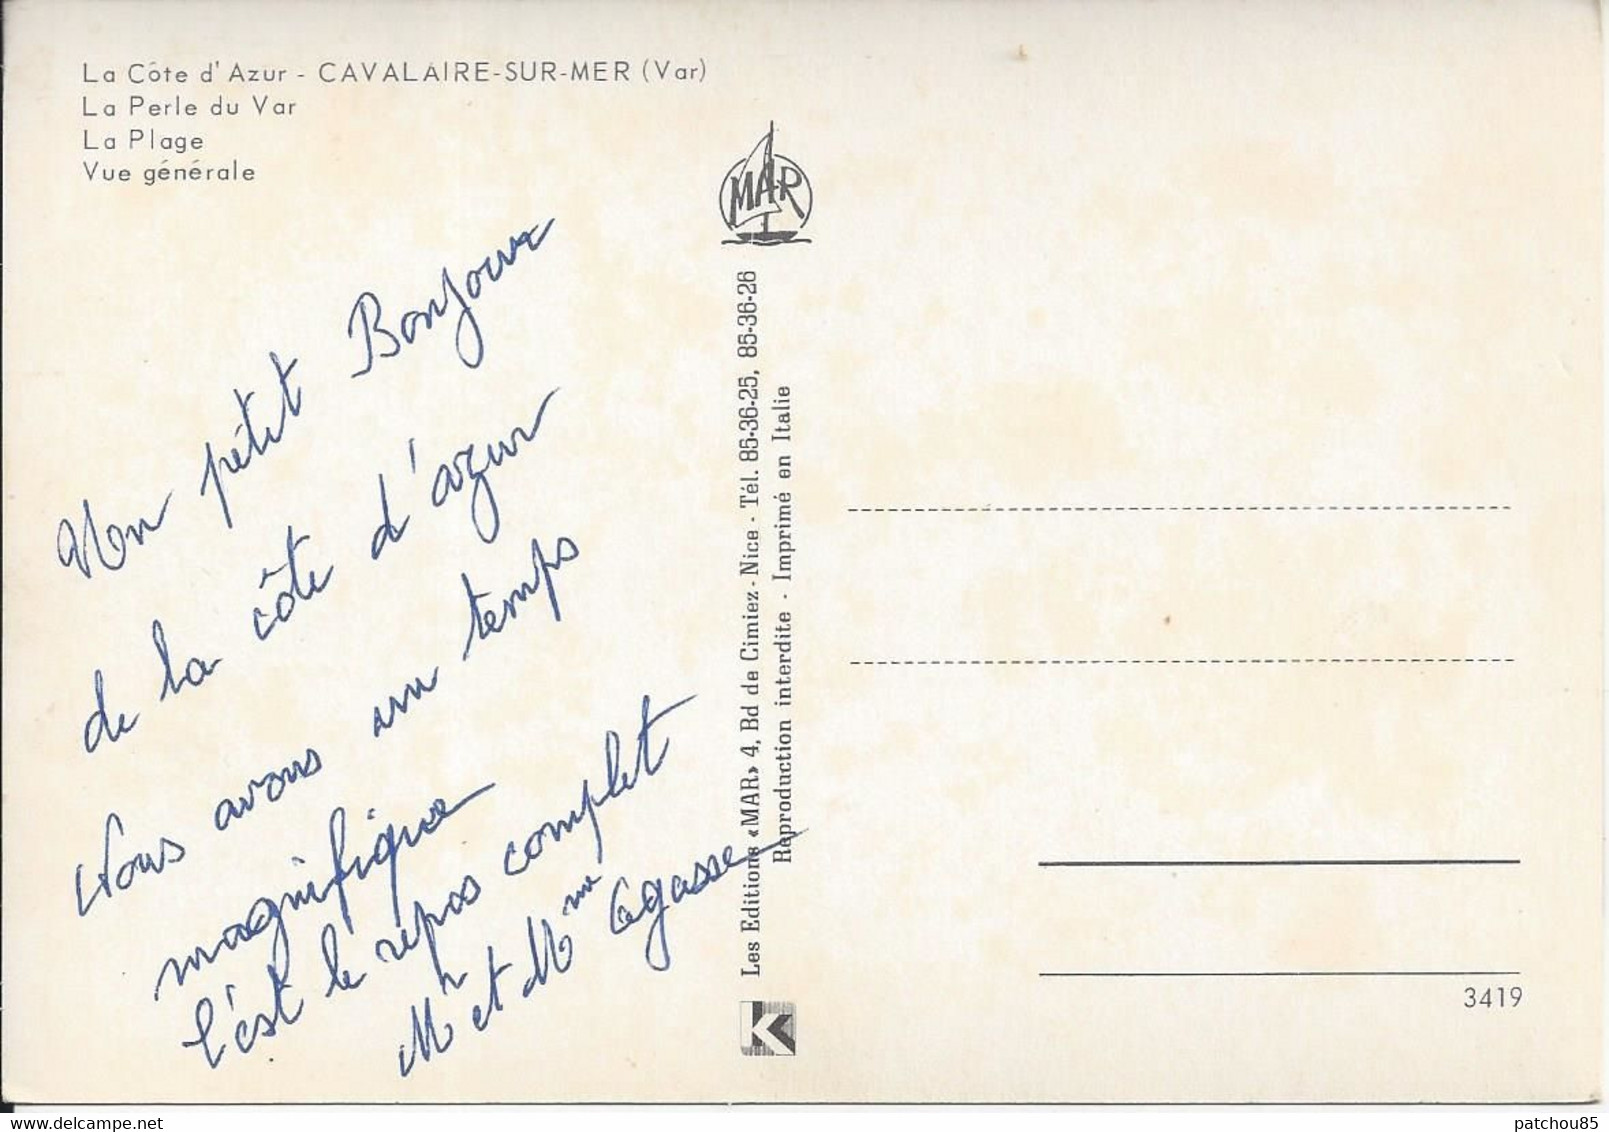 La Côte d'Azur - CAVALAIRE-SUR-MER (Var)
La Perle du Var
La Plage
Vue générale
MAR
Un pétit Bonjour
de la côte d'azur
Nous avons un temps
magnifique
C'est le repos complet
Mr et Mme
Les Editions «MAR» 4, Bd de Cimiez - Nice - Tél. 85-36-25, 85-36-26
Reproduction interdite - Imprimé en Italie
K
3419
www.delcampe.net
patchou85